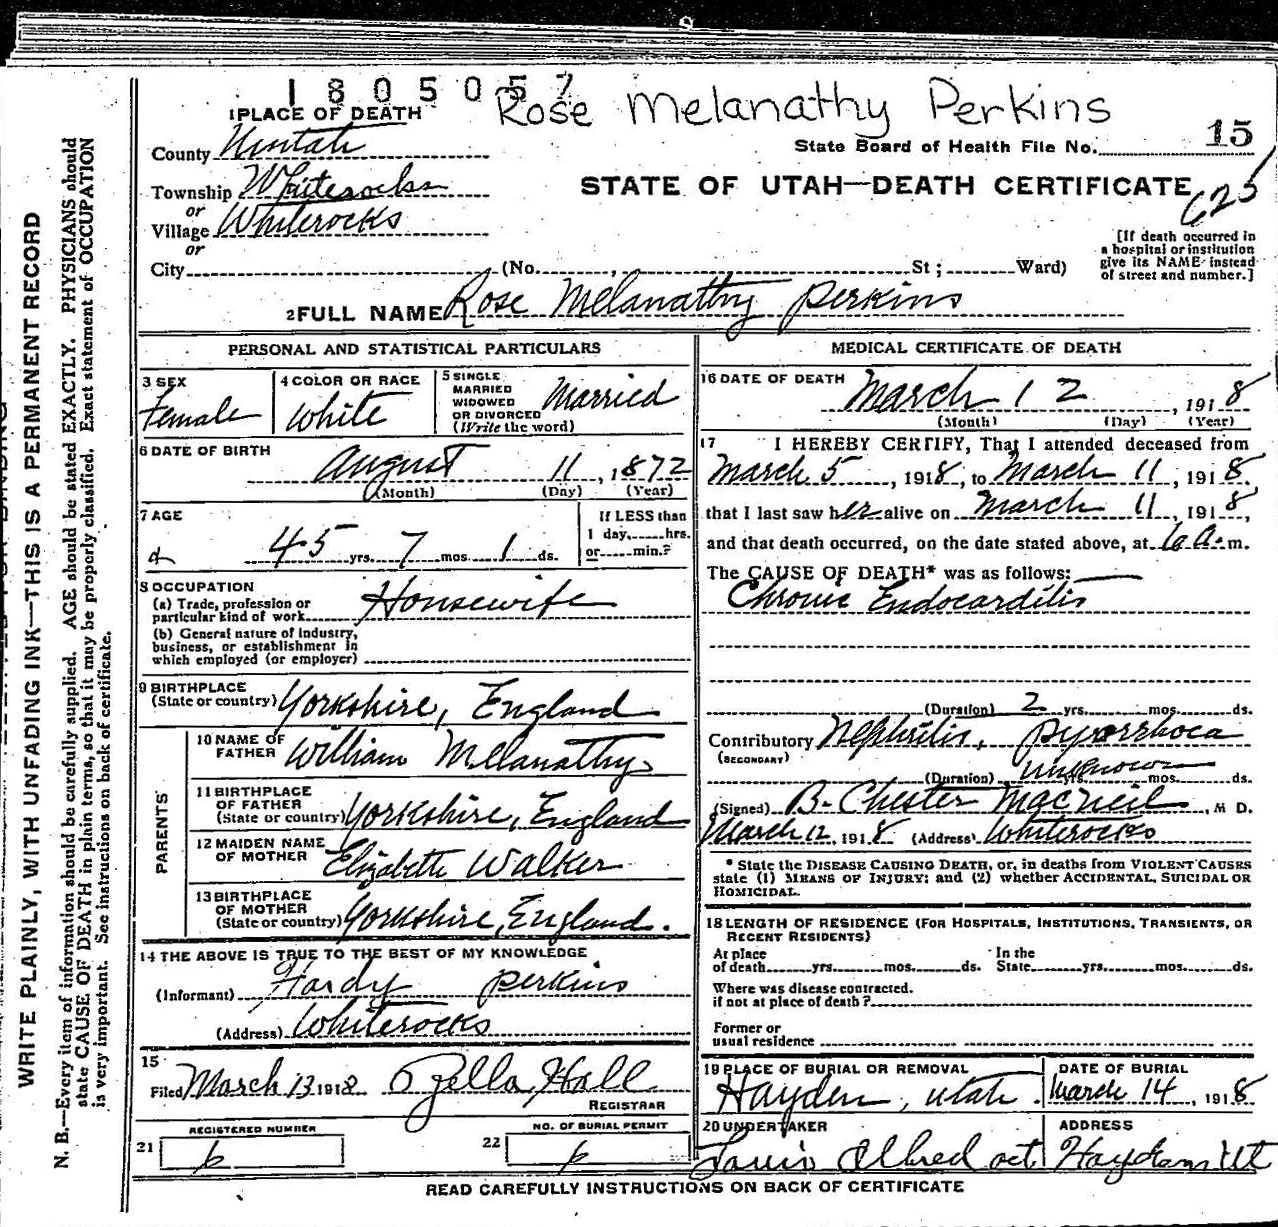 1805057
Rose Melanathy Perkins
1 PLACE OF DEATH
County Uintah
State Board of Health File No. 15
Township Whiterocks
STATE OF UTAH—DEATH CERTIFICATE
625
or
Village Whiterocks
or
City (No. , St ; Ward)
[If death occurred in
a hospital or institution
give its NAME instead
of street and number.]
2 FULL NAME Rose Melanathy Perkins
PERSONAL AND STATISTICAL PARTICULARS
3 SEX
Female
4 COLOR OR RACE
White
5 SINGLE
MARRIED
WIDOWED
OR DIVORCED
(Write the word)
Married
6 DATE OF BIRTH
August 11, 1872
(Month) (Day) (Year)
7 AGE
45 yrs. 7 mos. 1 ds.
If LESS than
1 day, hrs.
or min.?
8 OCCUPATION
(a) Trade, profession or
particular kind of work Housewife
(b) General nature of industry,
business, or establishment in
which employed (or employer)
9 BIRTHPLACE
(State or country) Yorkshire, England
PARENTS
10 NAME OF
FATHER William Melanathy
11 BIRTHPLACE
OF FATHER
(State or country) Yorkshire, England
12 MAIDEN NAME
OF MOTHER Elizabeth Walker
13 BIRTHPLACE
OF MOTHER
(State or country) Yorkshire, England.
14 THE ABOVE IS TRUE TO THE BEST OF MY KNOWLEDGE
(Informant) Hardy Perkins
(Address) Whiterocks
15
Filed March 13 1918 Ozella Hall
REGISTRAR
21
REGISTERED NUMBER
6
22
NO. OF BURIAL PERMIT
6
MEDICAL CERTIFICATE OF DEATH
16 DATE OF DEATH
March 12, 1918
(Month) (Day) (Year)
17 I HEREBY CERTIFY, That I attended deceased from
March 5, 1918, to March 11, 1918.
that I last saw her alive on March 11, 1918,
and that death occurred, on the date stated above, at 6 a. m.
The CAUSE OF DEATH* was as follows:
Chronic Endocarditis
(Duration) 2 yrs. mos. ds.
Contributory Nephritis, pyorrhoea
(SECONDARY)
(Duration) unknown yrs. mos. ds.
(Signed) B. Chester MacNeil, M D.
March 12, 1918 (Address) Whiterocks
* State the DISEASE CAUSING DEATH, or, in deaths from VIOLENT CAUSES
state (1) MEANS OF INJURY; and (2) whether ACCIDENTAL, SUICIDAL OR
HOMICIDAL.
18 LENGTH OF RESIDENCE (FOR HOSPITALS, INSTITUTIONS, TRANSIENTS, OR
RECENT RESIDENTS)
At place
of death yrs. mos. ds.
In the
State yrs. mos. ds.
Where was disease contracted.
if not at place of death?
Former or
usual residence
19 PLACE OF BURIAL OR REMOVAL
Hayden, Utah.
DATE OF BURIAL
March 14, 1918
20 UNDERTAKER
ADDRESS
Hayden Ut
READ CAREFULLY INSTRUCTIONS ON BACK OF CERTIFICATE
WRITE PLAINLY, WITH UNFADING INK—THIS IS A PERMANENT RECORD
N. B.—Every item of information should be carefully supplied. AGE should be stated EXACTLY. PHYSICIANS should
state CAUSE OF DEATH in plain terms, so that it may be properly classified. Exact statement of OCCUPATION
is very important. See instructions on back of certificate.